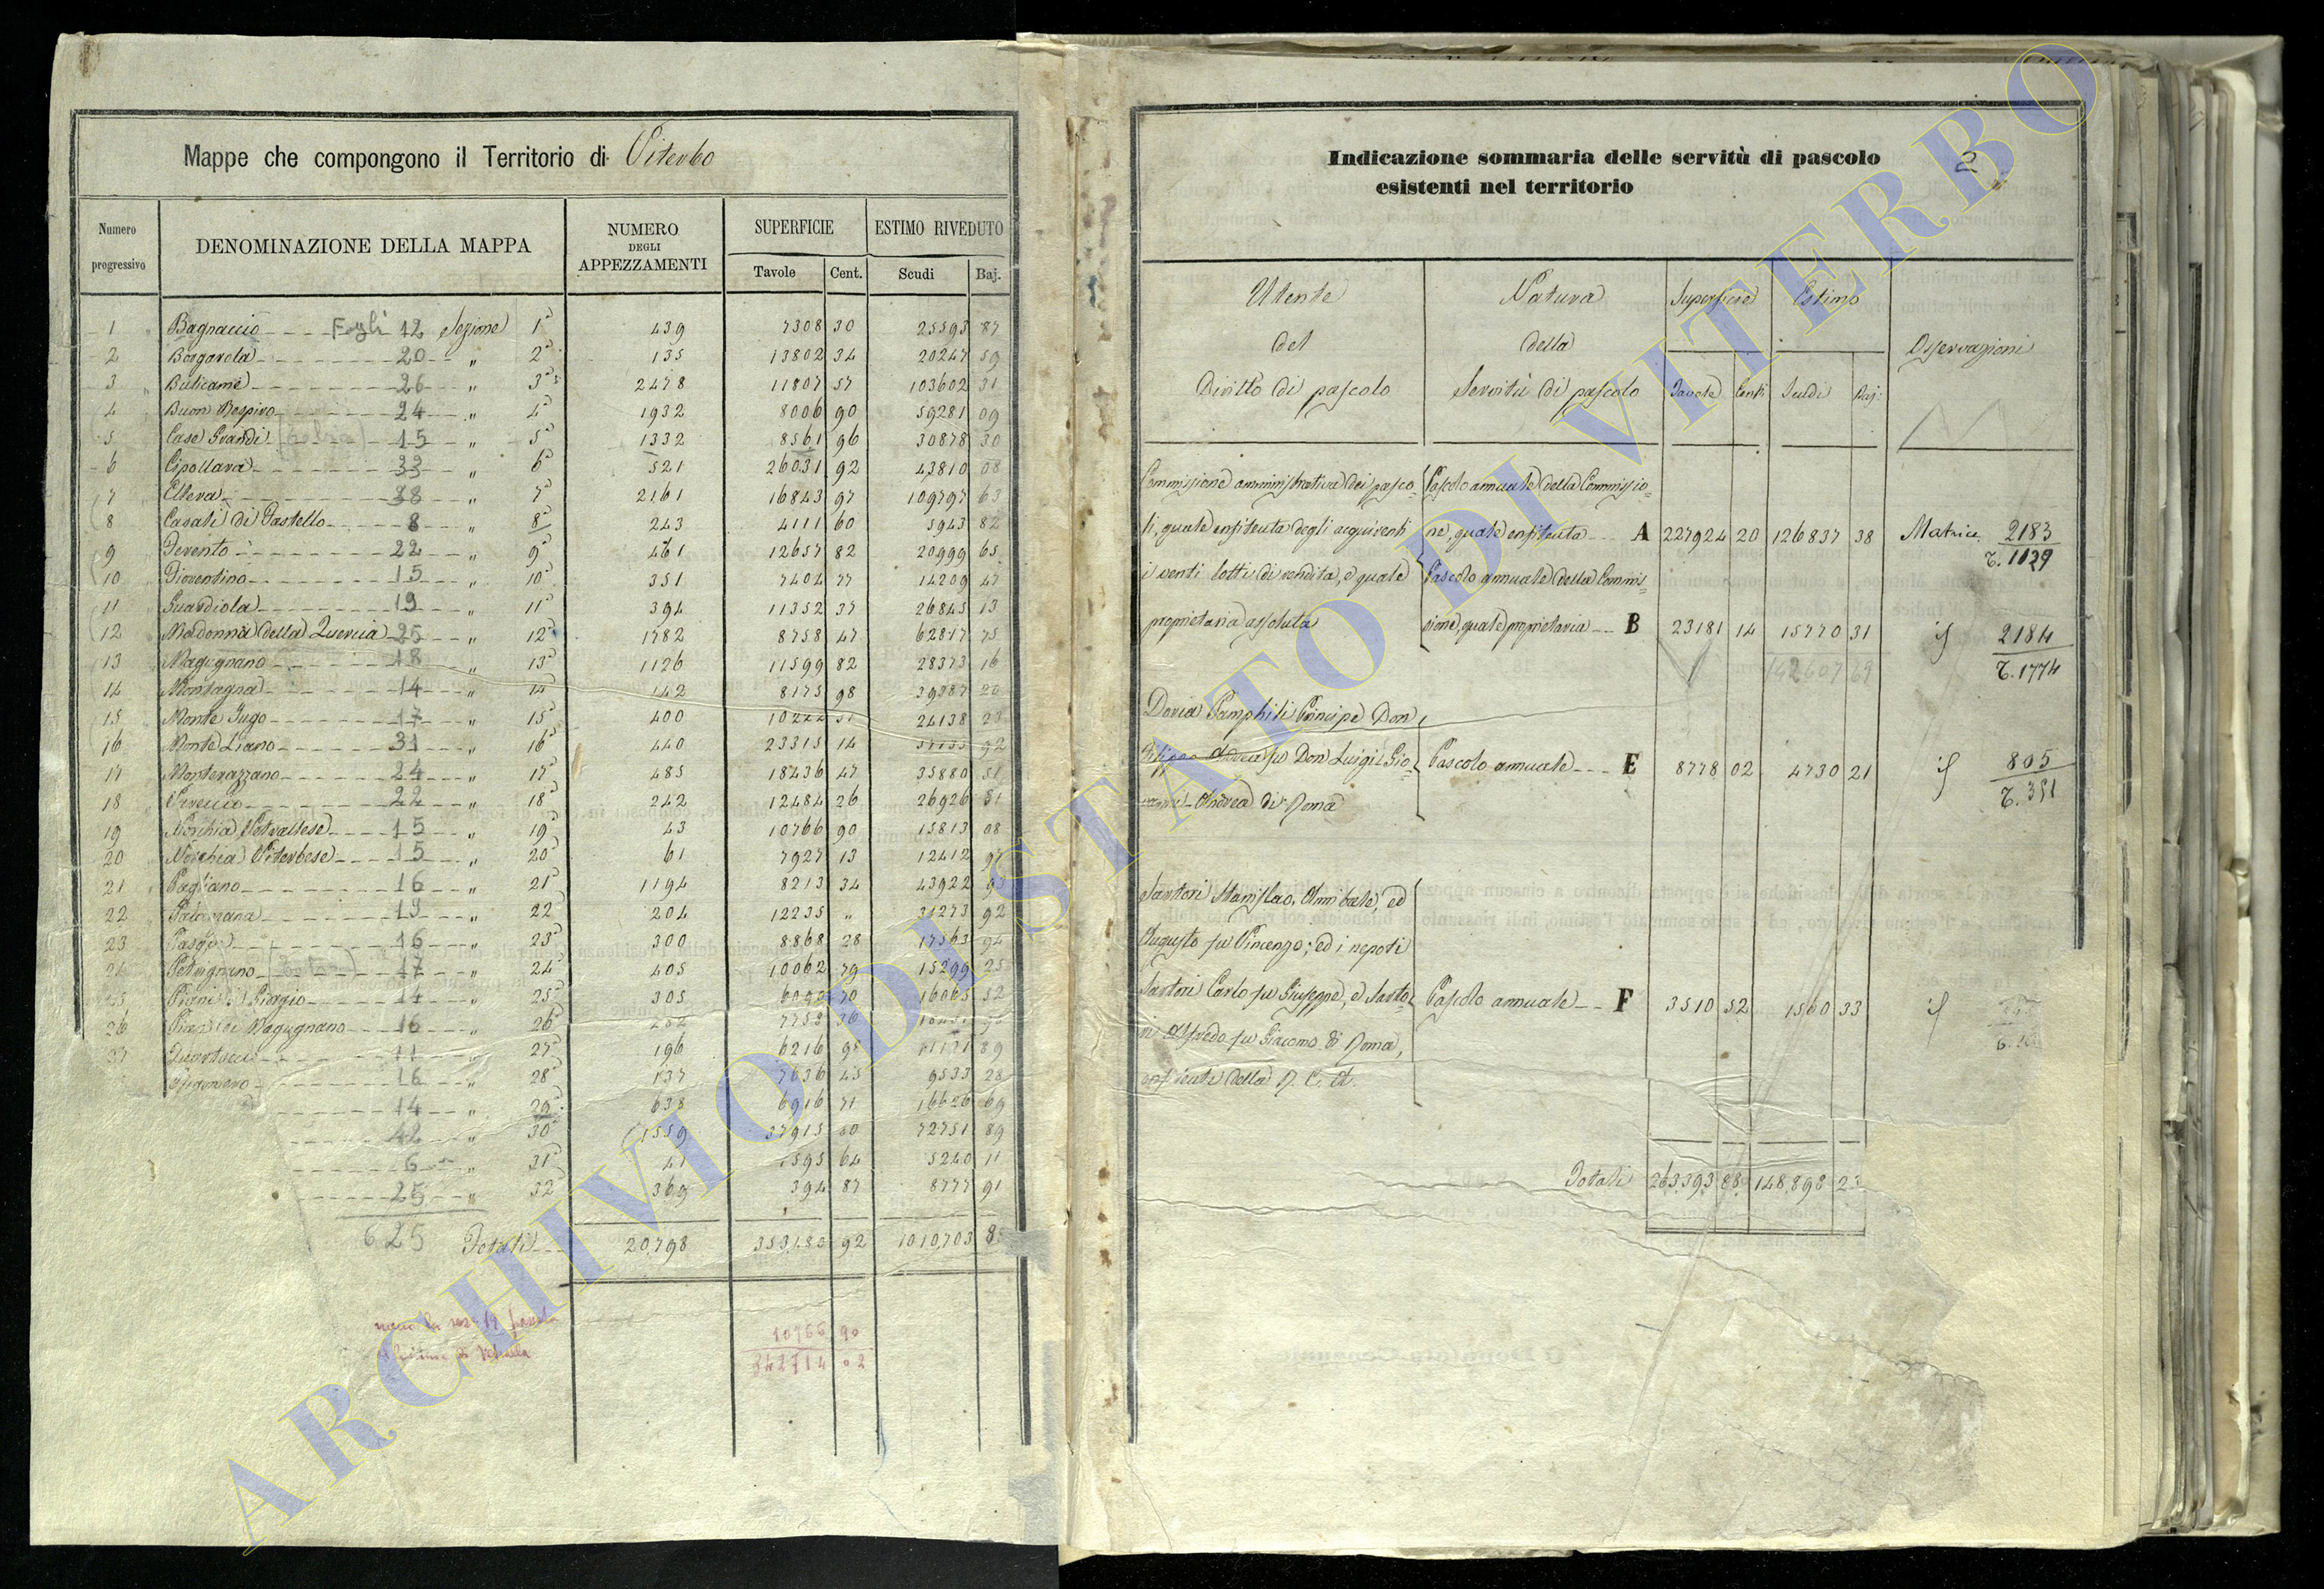 Mappe che compongono il Territorio di Viterbo
Numero progressivo
DENOMINAZIONE DELLA MAPPA
NUMERO DEGLI APPEZZAMENTI
SUPERFICIE
ESTIMO RIVEDUTO
Tavole Cent. Scudi Baj.
1 Bagnaccio Fogli 12 Sezione 1ª 439 7308 30 25593 87
2 20 " 2ª 135 13802 34 20247 59
3 Bulicame 26 " 3ª 2478 11807 57 103602 31
4 Buon Respiro 24 " 4ª 1932 8006 90 59281 09
5 Case Grandi 15 " 5ª 1332 8561 96 30878 30
6 Cipollara 33 " 6ª 521 26031 92 43810 08
7 Elleva 38 " 7ª 2161 16843 97 109797 63
8 Casali di Gastello 8 " 8ª 243 4111 60 5943 82
9 Ferento 22 " 9ª 461 12657 82 20999 65
10 15 " 10ª 351 7404 77 14209 47
11 Guardiola 19 " 11ª 394 11352 37 26845 13
12 Madonna della Quercia 25 " 12ª 1782 8758 47 62817 75
13 Magugnano 18 " 13ª 1126 11599 82 28373 16
14 Montagna 14 " 14ª 142 8175 98 39387 20
15 Monte Jugo 17 " 15ª 400 24138
16 Monte Liano 31 " 16ª 440 23315 14 92
17 Monterazzano 24 " 17ª 485 18436 47 35880 51
18 22 " 18ª 242 12484 26 26926 81
19 Norchia Vetrallese 15 " 19ª 43 10766 90 15813 08
20 Norchia Viterbese 15 " 20ª 61 7927 13 12412
21 Pagliano 16 " 21ª 1194 8213 34 43922
22 Palanzana 19 " 22ª 204 12235 " 31273 92
23 16 " 23ª 300 8868 28 17563 94
Petrignano 17 " 24ª 405 10062 79 15299 25
14 " 25ª 305 6090 70 16065 52
26 Pian di Magugnano 16 " 26ª
11 " 27ª 196 6216 89
16 " 28ª 137 7636 45 9533 28
14 " 29ª 638 6916 71 16626 69
42 " 30ª 1559 37915 60 72751 89
6 " 31ª 41 1595 64 5240 11
25 " 32ª 369 394 87 8777 91
625 Totali 20,798 353,480 92 1010,703
10766 90
342714 02
Indicazione sommaria delle servitù di pascolo 2
esistenti nel territorio
Utente del Diritto di pascolo
Natura della Servitù di pascolo
Superficie
Estimo
Osservazioni
Tavole Cent. Scudi Baj:
Commissione amministrativa dei pasco-
li, quale enfiteuta degli acquirenti
i venti lotti di vendita, e quale
proprietaria assoluta
Pascolo annuale della Commissio-
ne, quale enfiteuta A 227924 20 126837 38 Matrice 2183
T. 1129
Pascolo annuale della Commis-
sione, quale proprietaria B 23181 14 15770 31 id 2184
142607 69 T. 1774
Doria Pamphili Principe Don
Filippo Andrea fu Don Luigi Gio-
vanni Andrea di Roma
Pascolo annuale E 8778 02 4730 21 id 805
T. 351
Sartori Stanislao, Annibale, ed
Augusto fu Vincenzo; ed i nepoti
Sartori Carlo fu Giuseppe, e Sarto-
ri Alfredo fu Giacomo di Roma,
enfiteuti della R. C. A.
Pascolo annuale F 3510 52 1560 33 id
Totali 263,393 88 148,898 23
ARCHIVIO DI STATO DI VITERBO